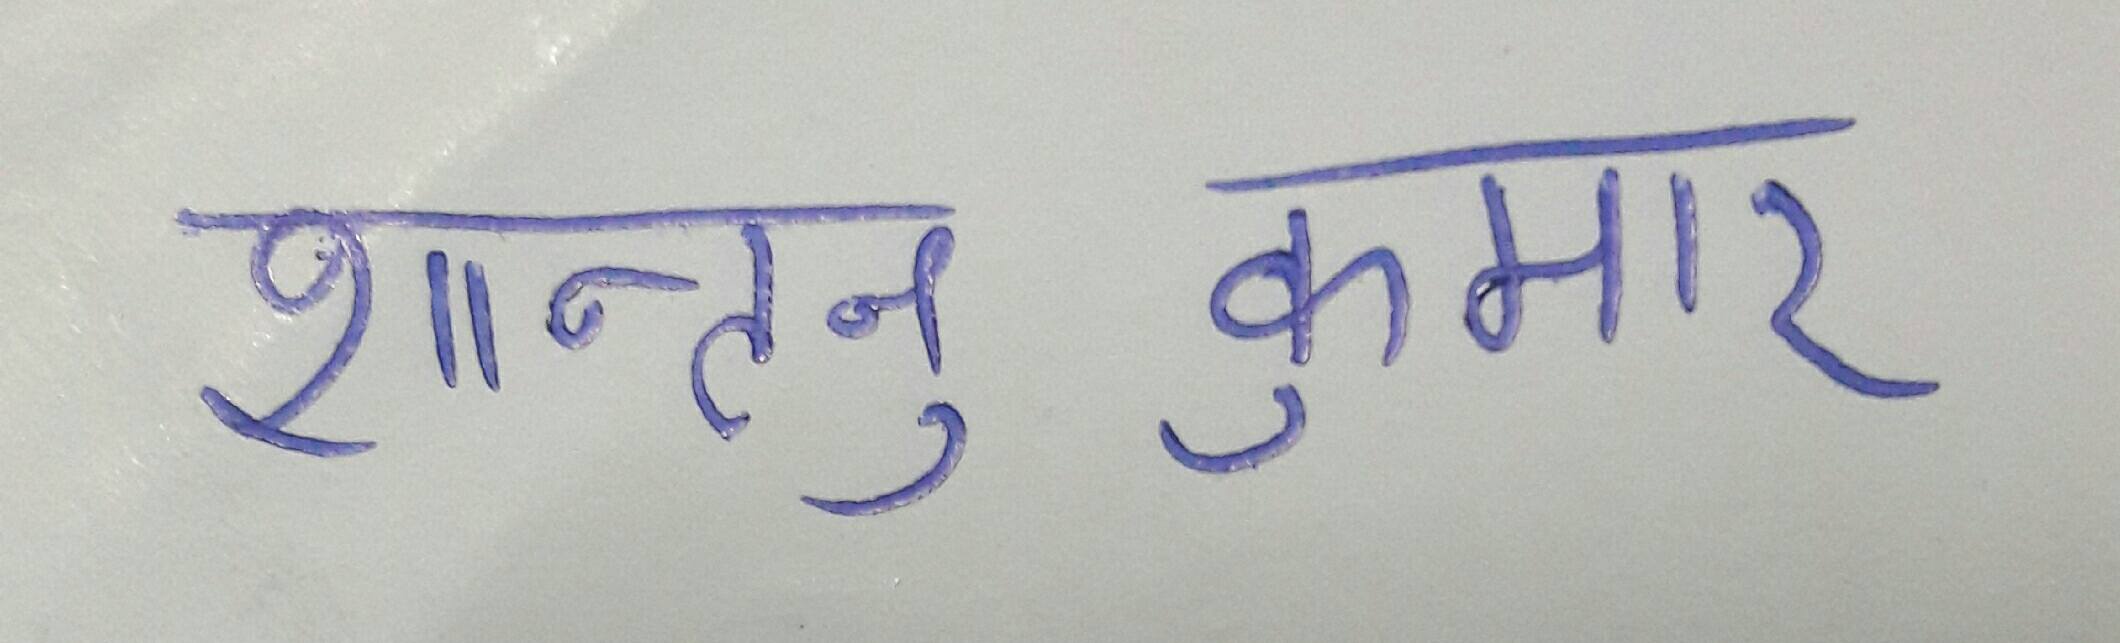 शान्तनु कुमार